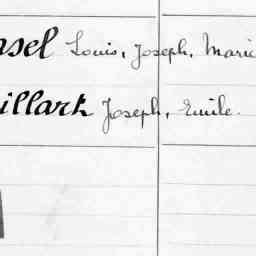 nsel Louis, Joseph, Marie
illark Joseph, Emile.